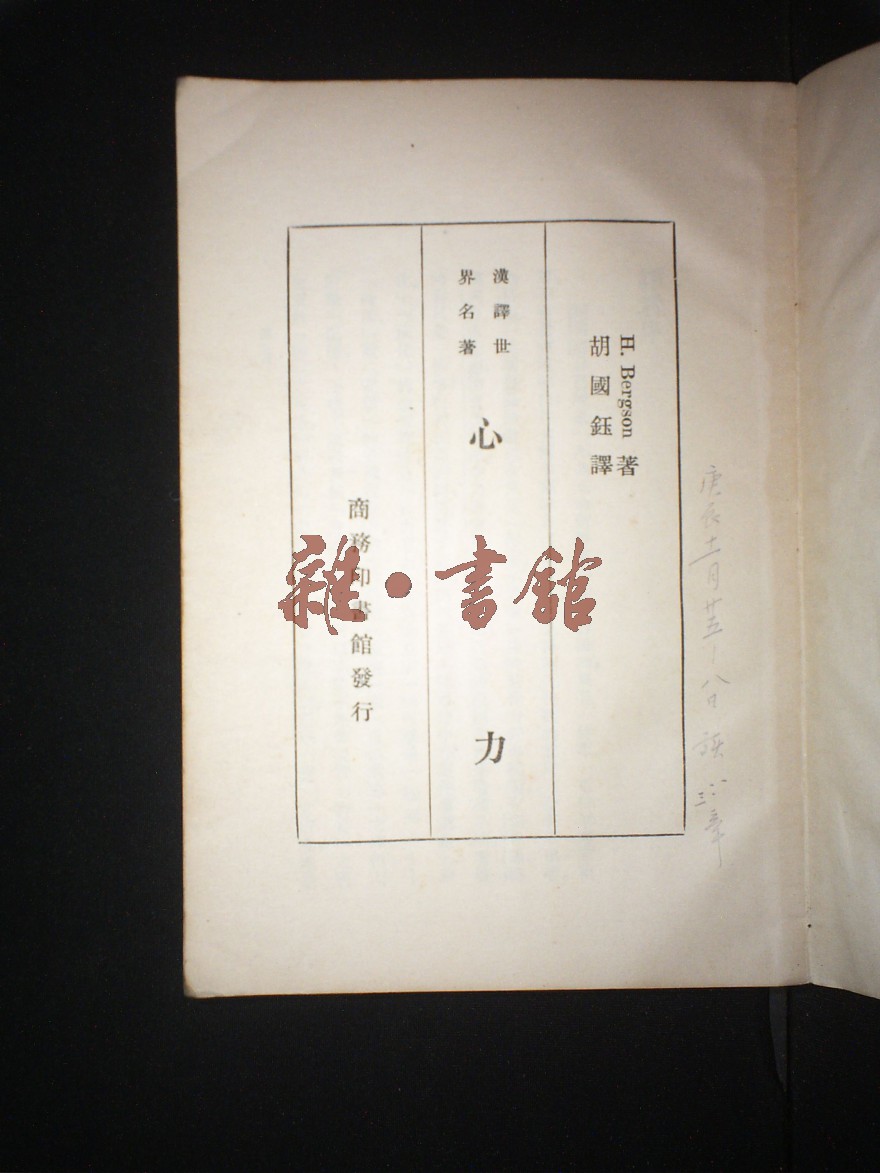 H. Bergson 著
胡國鈺譯
漢譯世
界名著
心力
商務印書館發行
雜·書館
庚辰十一月廿五—八日